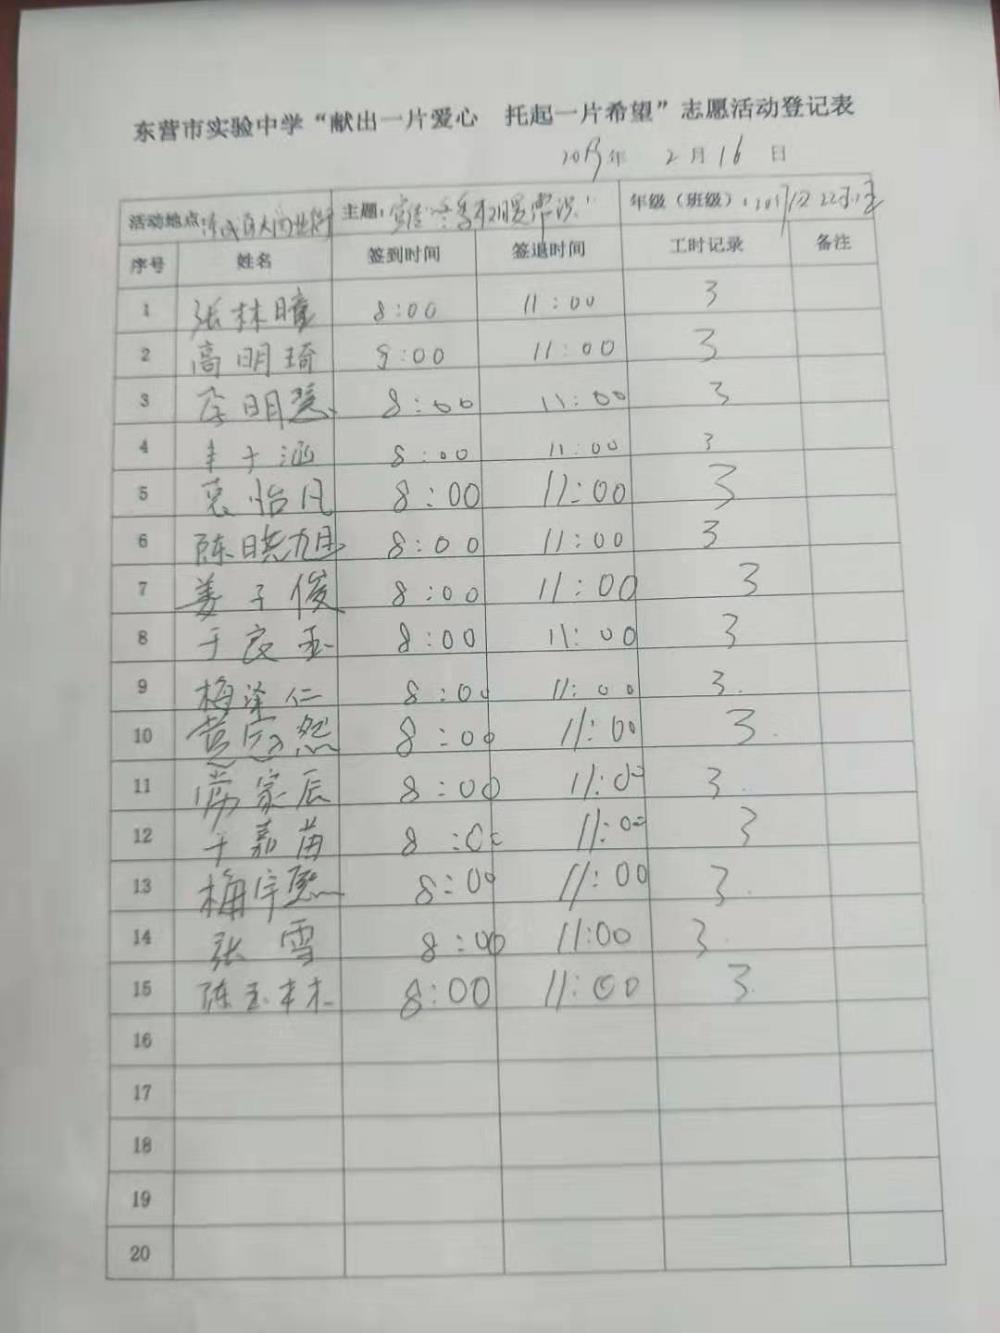 东营市实验中学“献出一片爱心 托起一片希望”志愿活动登记表
2019年 2月16日
活动地点: 主题: 年级（班级）:
序号 姓名 签到时间 签退时间 工时记录 备注
1 张林瞳 8:00 11:00 3
2 高明琦 9:00 11:00 3
3 李明慧 8:00 11:00 3
4 丰于涵 8:00 11:00 3
5 袁怡凡 8:00 11:00 3
6 陈晓旭 8:00 11:00 3
7 姜子俊 8:00 11:00 3
8 于良玉 8:00 11:00 3
9 梅泽仁 8:00 11:00 3.
10 黄冠然 8:00 11:00 3.
11 常家辰 8:00 11:00 3.
12 于嘉苗 8:00 11:00 3
13 梅宇熙 8:00 11:00 3.
14 张雪 8:00 11:00 3.
15 陈玉 8:00 11:00 3.
16
17
18
19
20